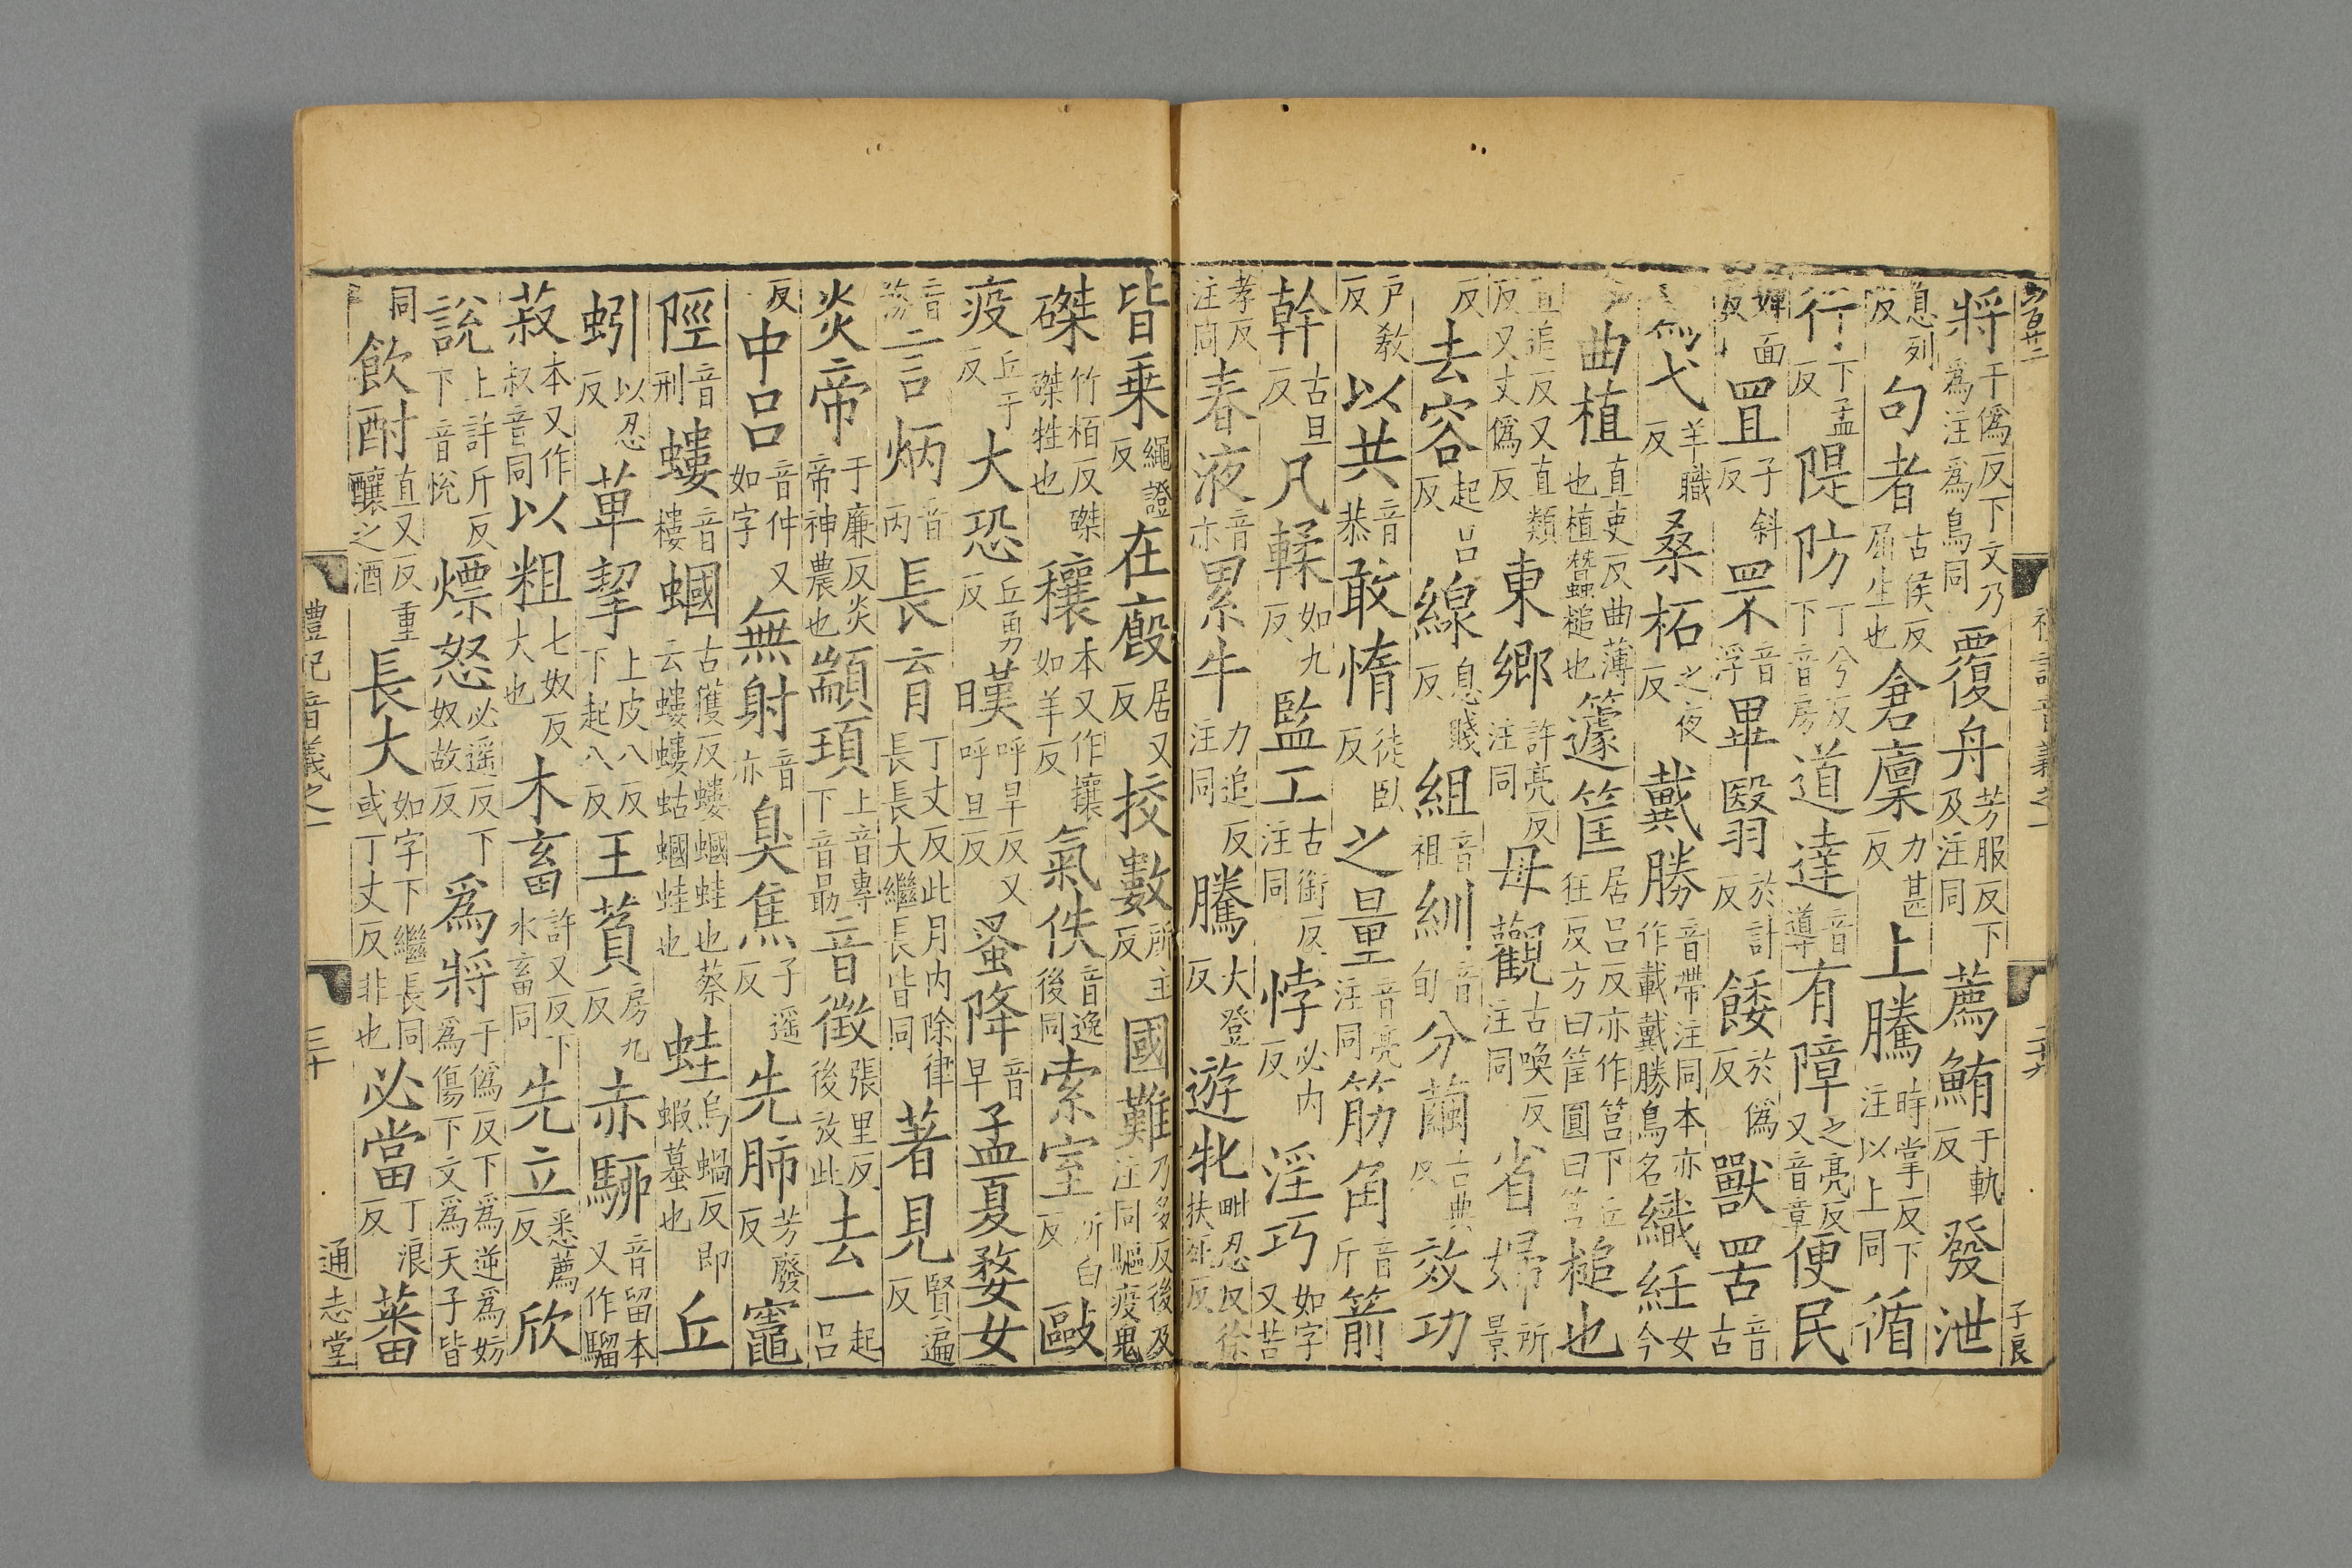 將于僞反下文乃爲注爲鳥同覆舟芳服反下及注同薦鮪于軌反發泄
息列反句者古侯反屈生也倉廩力甚反上騰時掌反下注以上同循
行下孟反隄防丁兮反下音房道達音導有障之亮反又音章便民
婢面反罝子斜反罘音浮畢翳於計反餧於僞反獸罟音古
弋羊職反桑柘之夜反戴勝音帶注同本亦作載戴勝鳥名織紝女今
曲植直吏反曲薄也植蠶槌也籧筐居呂反亦作筥下丘狂反方曰筐圓曰筥槌也
直追反又直類反又丈僞反東鄉許亮反注同毋觀古喚反注同省婦所景
反去容起呂反線息賤反組音祖紃音旬分繭古典反效功
戶敎反以共音恭敢惰徒臥反之量音亮注同筋角音斤箭
幹古旦反凡輮如九反監工古銜反注同悖必內反淫巧如字又苦
孝反注同舂液音亦累牛力追反注同騰大登反遊牝毗忍反徐扶死反
皆乗繩證反在廏居又反挍數所主反國難乃多反後及注同驅疫鬼
磔竹栢反磔磔牲也穰本又作攘如羊反氣佚音逸後同索室所白反毆
疫丘于反大恐丘勇反暵呼旱反又呼旦反蚤降音早孟夏婺女
音務言炳音丙長育丁丈反此月内除律長長大繼長皆同著見賢遍反
炎帝于廉反炎帝神農也顓頊上音專下音勗音徵張里反後放此去一起呂
反中呂音仲又如字無射音亦臭焦子遥反先肺芳廢反竈
陘音刑螻音樓蟈古獲反螻蟈蛙也蔡云螻螻蛄蟈蛙也蛙烏蝸反即蝦蟇也丘
蚓以忍反萆挈上皮八反下起八反王萯房九反赤駵音留本又作騮
菽本又作叔音同以粗七奴反大也木畜許又反下水畜同先立悉薦反欣
說上許斤反下音悅熛怒必遥反下奴故反爲將于僞反下爲逆爲妨爲傷下文爲天子皆
同飲酎直又反重釀之酒長大如字下繼長同或丁丈反非也必當丁浪反蕃
禮記音義之一
三十
通志堂